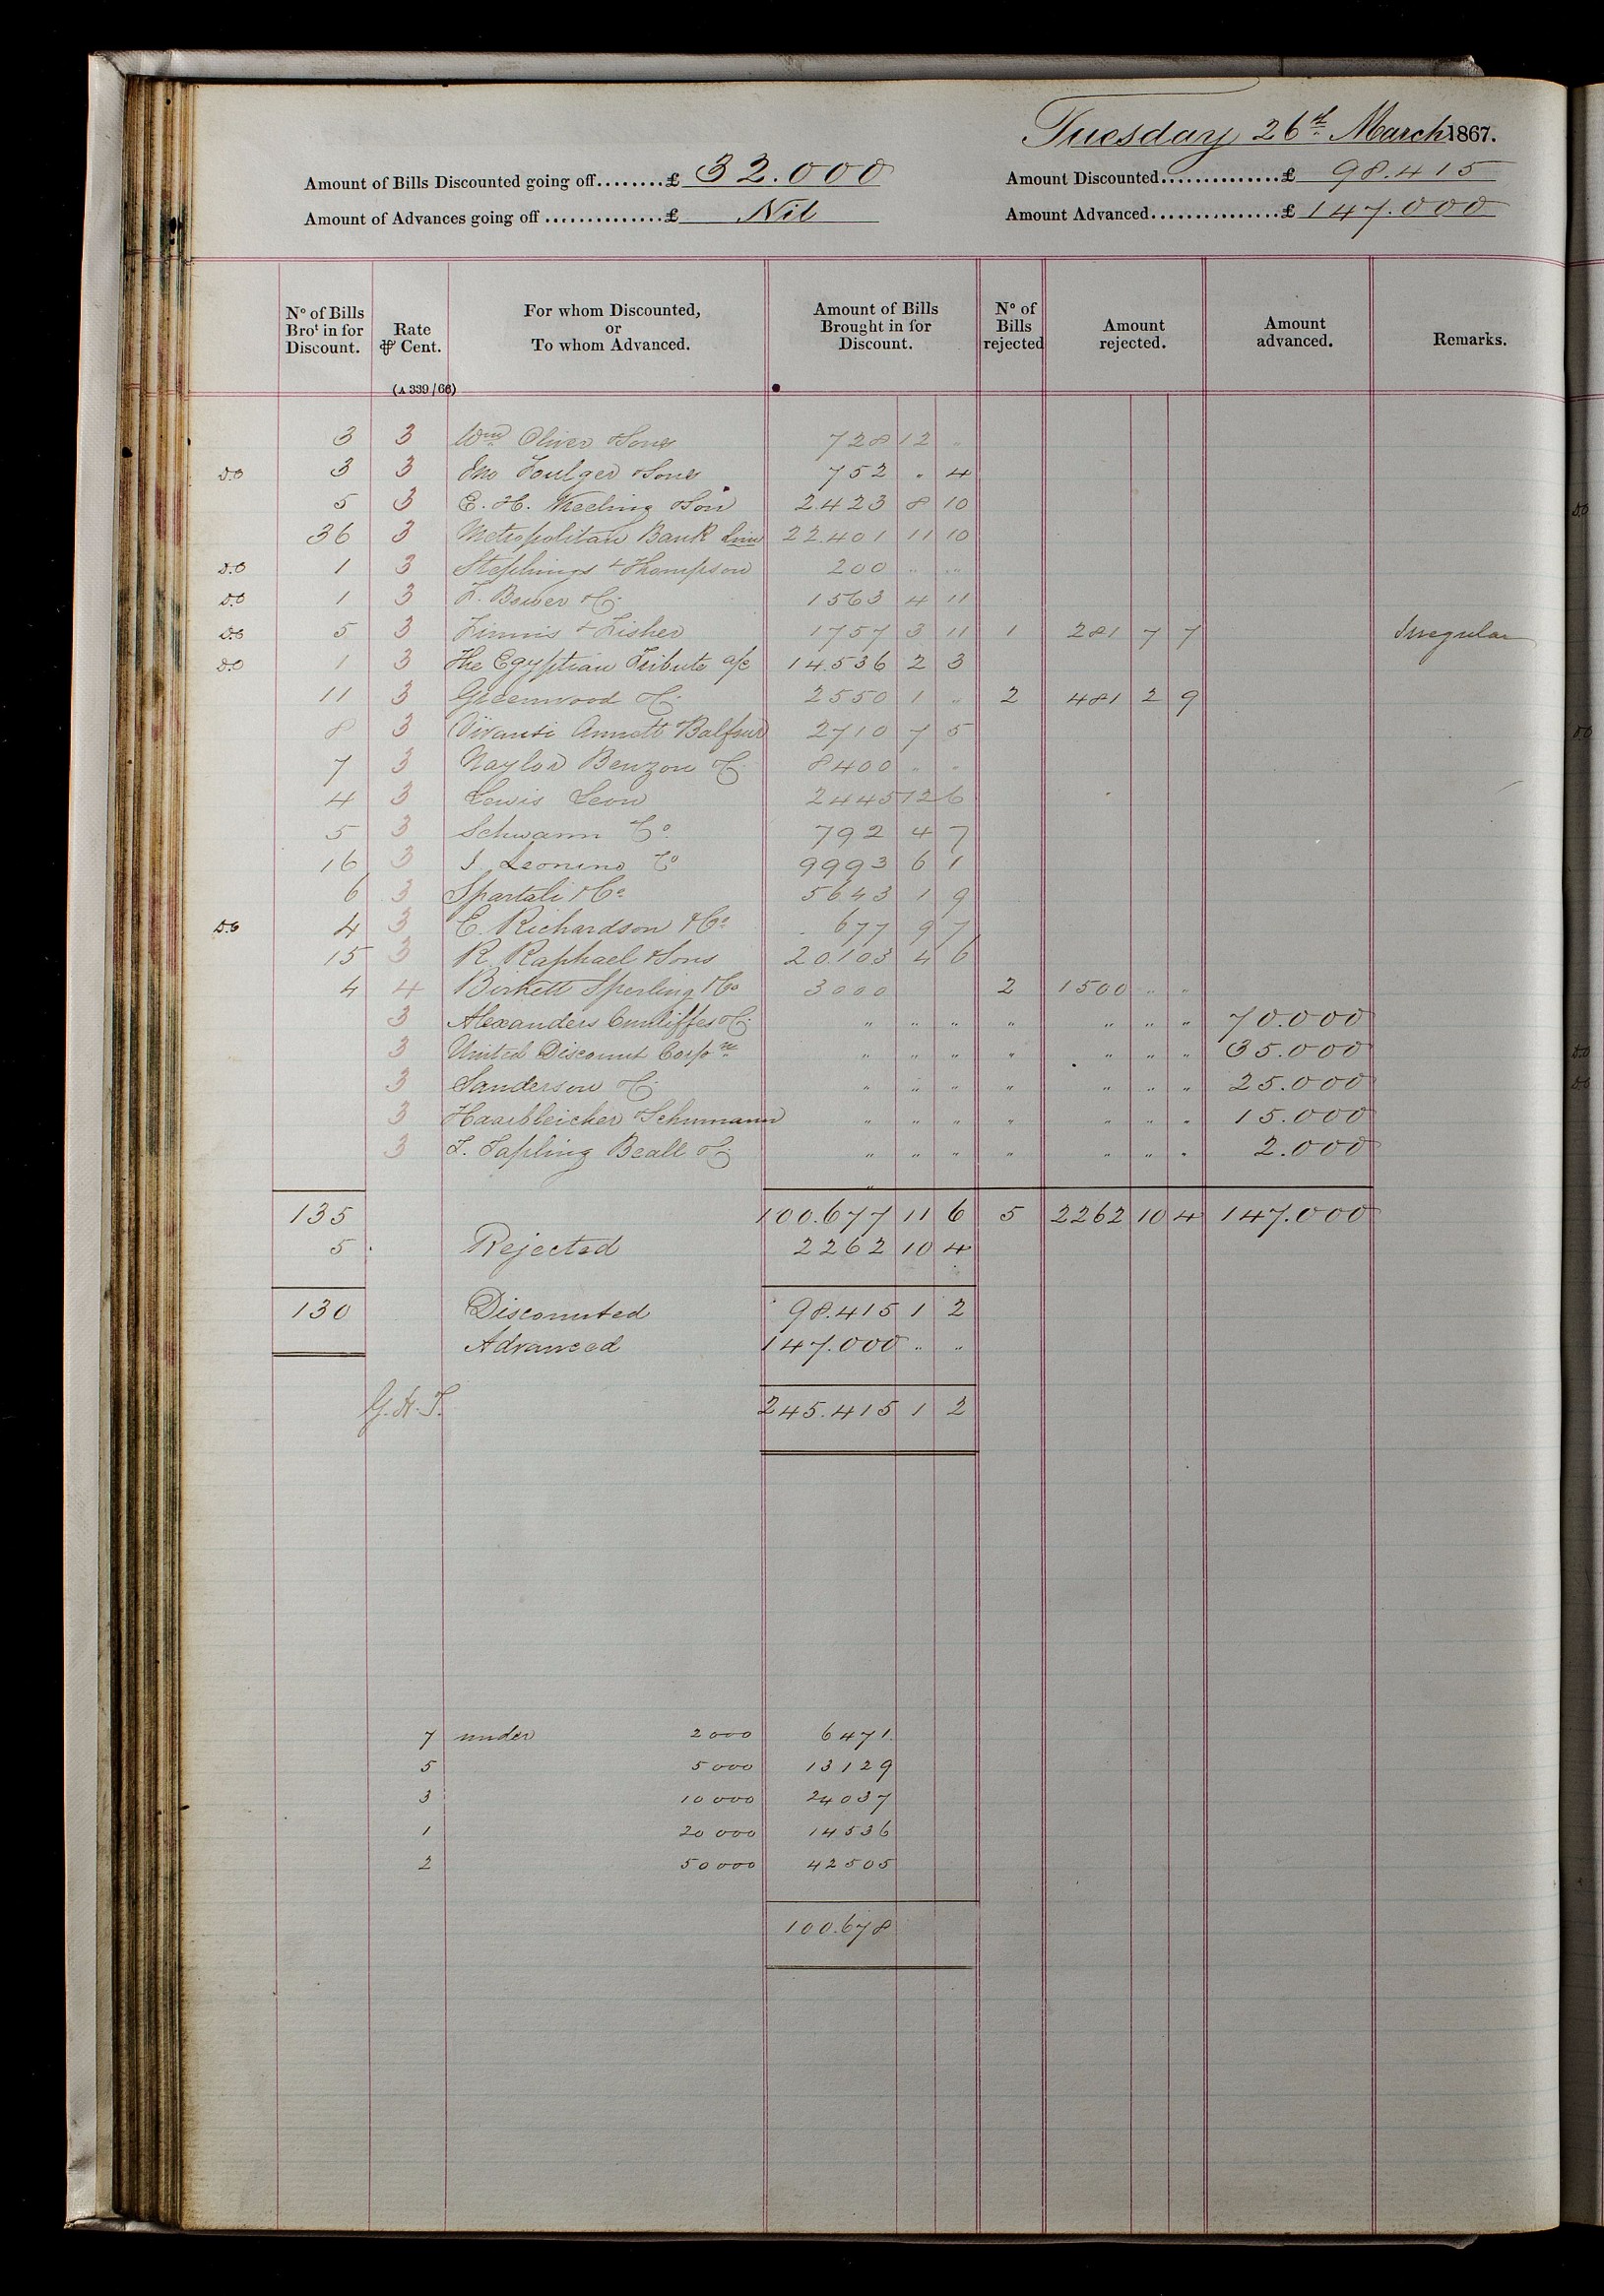 Tuesday 26th March 1867.
Amount of Bills Discounted going off........£ 32.000
Amount Discounted..............£ 98.415
Amount of Advances going off ..............£ Nil
Amount Advanced...............£ 147.000
No of Bills Brot in for Discount. Rate ⅌ Cent. For whom Discounted, or To whom Advanced. Amount of Bills Brought in for Discount. No of Bills rejected Amount rejected. Amount advanced. Remarks.
(A 339/66)
3 3 Wm Oliver & Sons 728 12 "
D.O 3 3 Jno Foulger & Sons 752 " 4
5 3 E. H. Keeling & Son 2.423 8 10
36 3 Metropolitan Bank Lim 22.401 11 10
D.O 1 3 & Thompson 200 " "
D.O 1 3 F. Bower & Co 1563 4 11
D.O 5 3 Finnis & Fisher 1757 3 11 1 281 7 7 Irregular
D.O 1 3 The Egyptian Tribute a/c 14.536 2 3
11 3 Greenwood & Co 2550 1 " 2 481 2 9
8 3 Vivanti Annett Balfour 2710 7 5
7 3 Naylor Benzon & Co 8400 " "
4 3 Lewis Leon 2445 12 6
5 3 Schwann & Co 792 4 7
16 3 J. Leonino & Co 9993 6 1
6 3 Spartali & Co 5643 1 9
D.O 4 3 E. Richardson & Co 677 9 7
15 3 R. Raphael & Sons 20.103 4 6
4 4 Birkett Sperling & Co 3000 2 1500 " "
3 Alexanders Cunliffes & Co " " " " " " " 70.000
3 United Discount Corpon " " " " " " " 35.000
3 Sanderson & Co " " " " " " " 25.000
3 Haarbleicher & Schumann " " " " " " " 15.000
3 T. Tapling Beall & Co " " " " " " " 2.000
135 100.677 11 6 5 2262 10 4 147.000
5 Rejected 2262 10 4
130 Discounted 98.415 1 2
Advanced 147.000 " "
G.H.T. 245.415 1 2
7 under 2000 6471
5 5000 13129
3 10000 24037
1 20000 14536
2 50000 42505
100.678